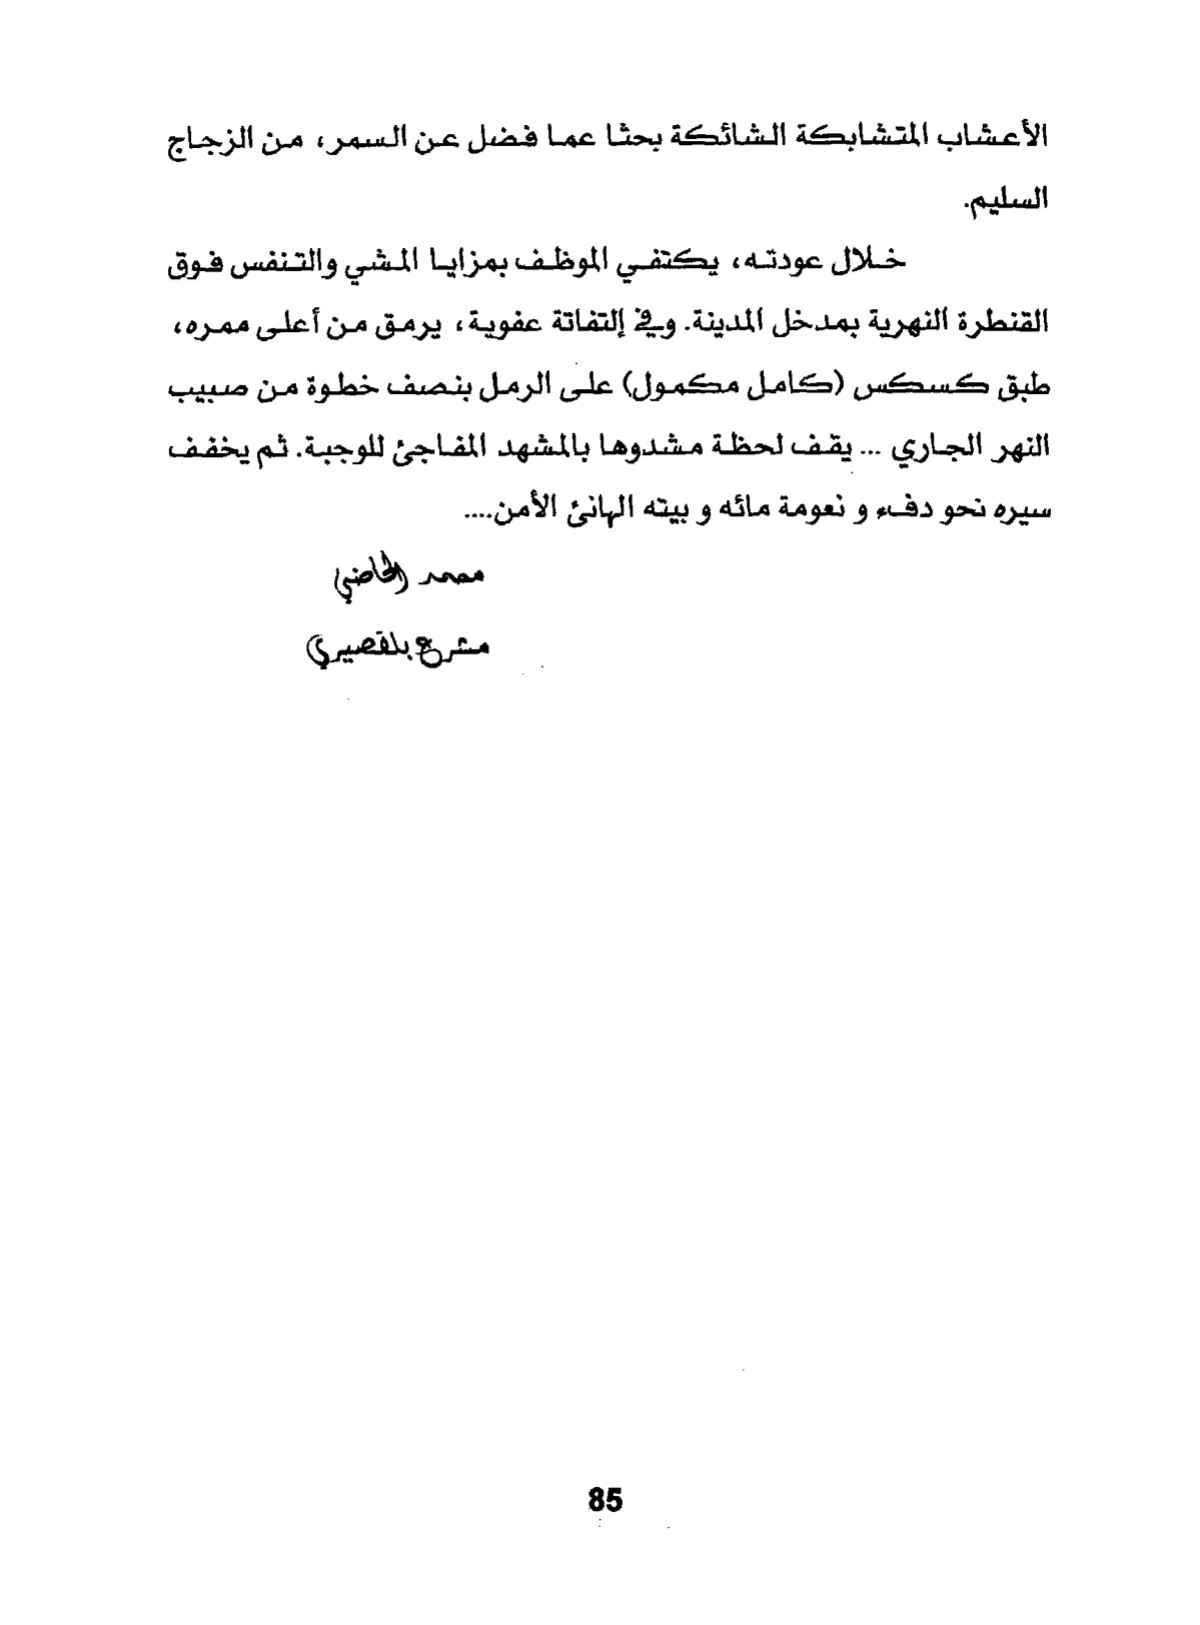 الأعشاب المتشابكة الشائكة بحثا عما فضل عن السمر، من الزجاج
السليم.
خلال عودته، يكتفي الموظف بمزايا المشي والتنفس فوق
القنطرة النهرية بمدخل المدينة. وفي إلتفاتة عفوية، يرمق من أعلى ممره،
طبق كسكس (كامل مكمول) على الرمل بنصف خطوة من صبيب
النهر الجاري ... يقف لحظة مشدوها بالمشهد المفاجئ للوجبة. ثم يخفف
سيره نحو دفء و نعومة مائه و بيته الهانئ الأمن....
محمد الحاضي
مشرع بلقصيري
85